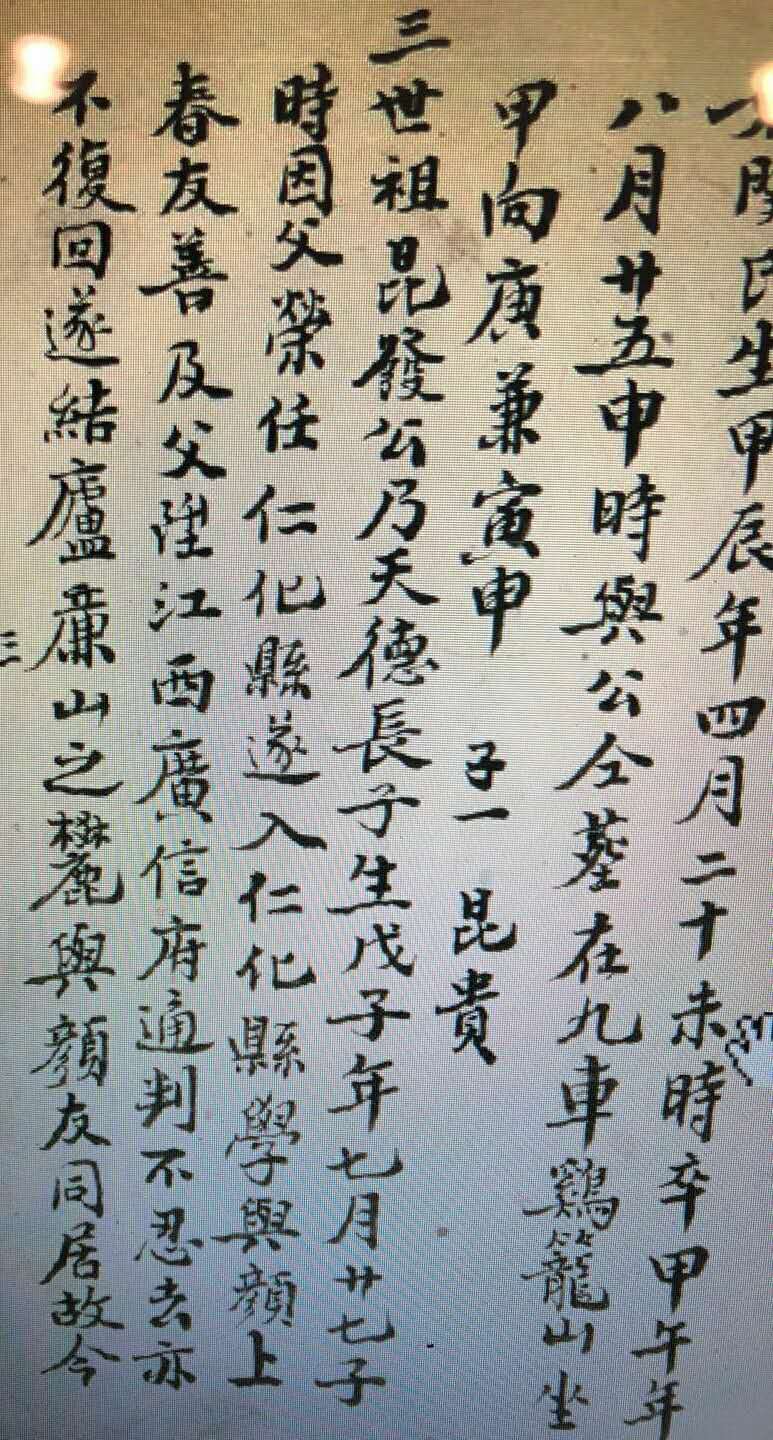 氏生甲辰年四月二十未時卒甲午年
八月廿五申時與公仝葬在九車鷄籠山坐
甲向庚兼寅申 子一 昆貴
三世祖昆發公乃天德長子生戊子年七月廿七子
時因父榮任仁化縣遂入仁化縣學與顏上
春友善及父陞江西廣信府通判不忍去亦
不復回遂結廬山之麓與顏友同居故今
三